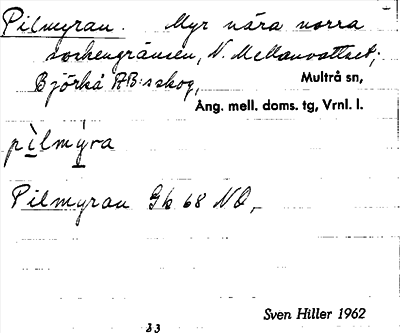 Pilmyran. Myr nära norra
sockengränsen, N. Mellanvattnet;
Björkå AB:s skog, Multrå sn,
Ång. mell. doms. tg, Vrnl. l.
pìlmýra
Pilmyran Gk 68 NO,
Sven Hiller 1962
23